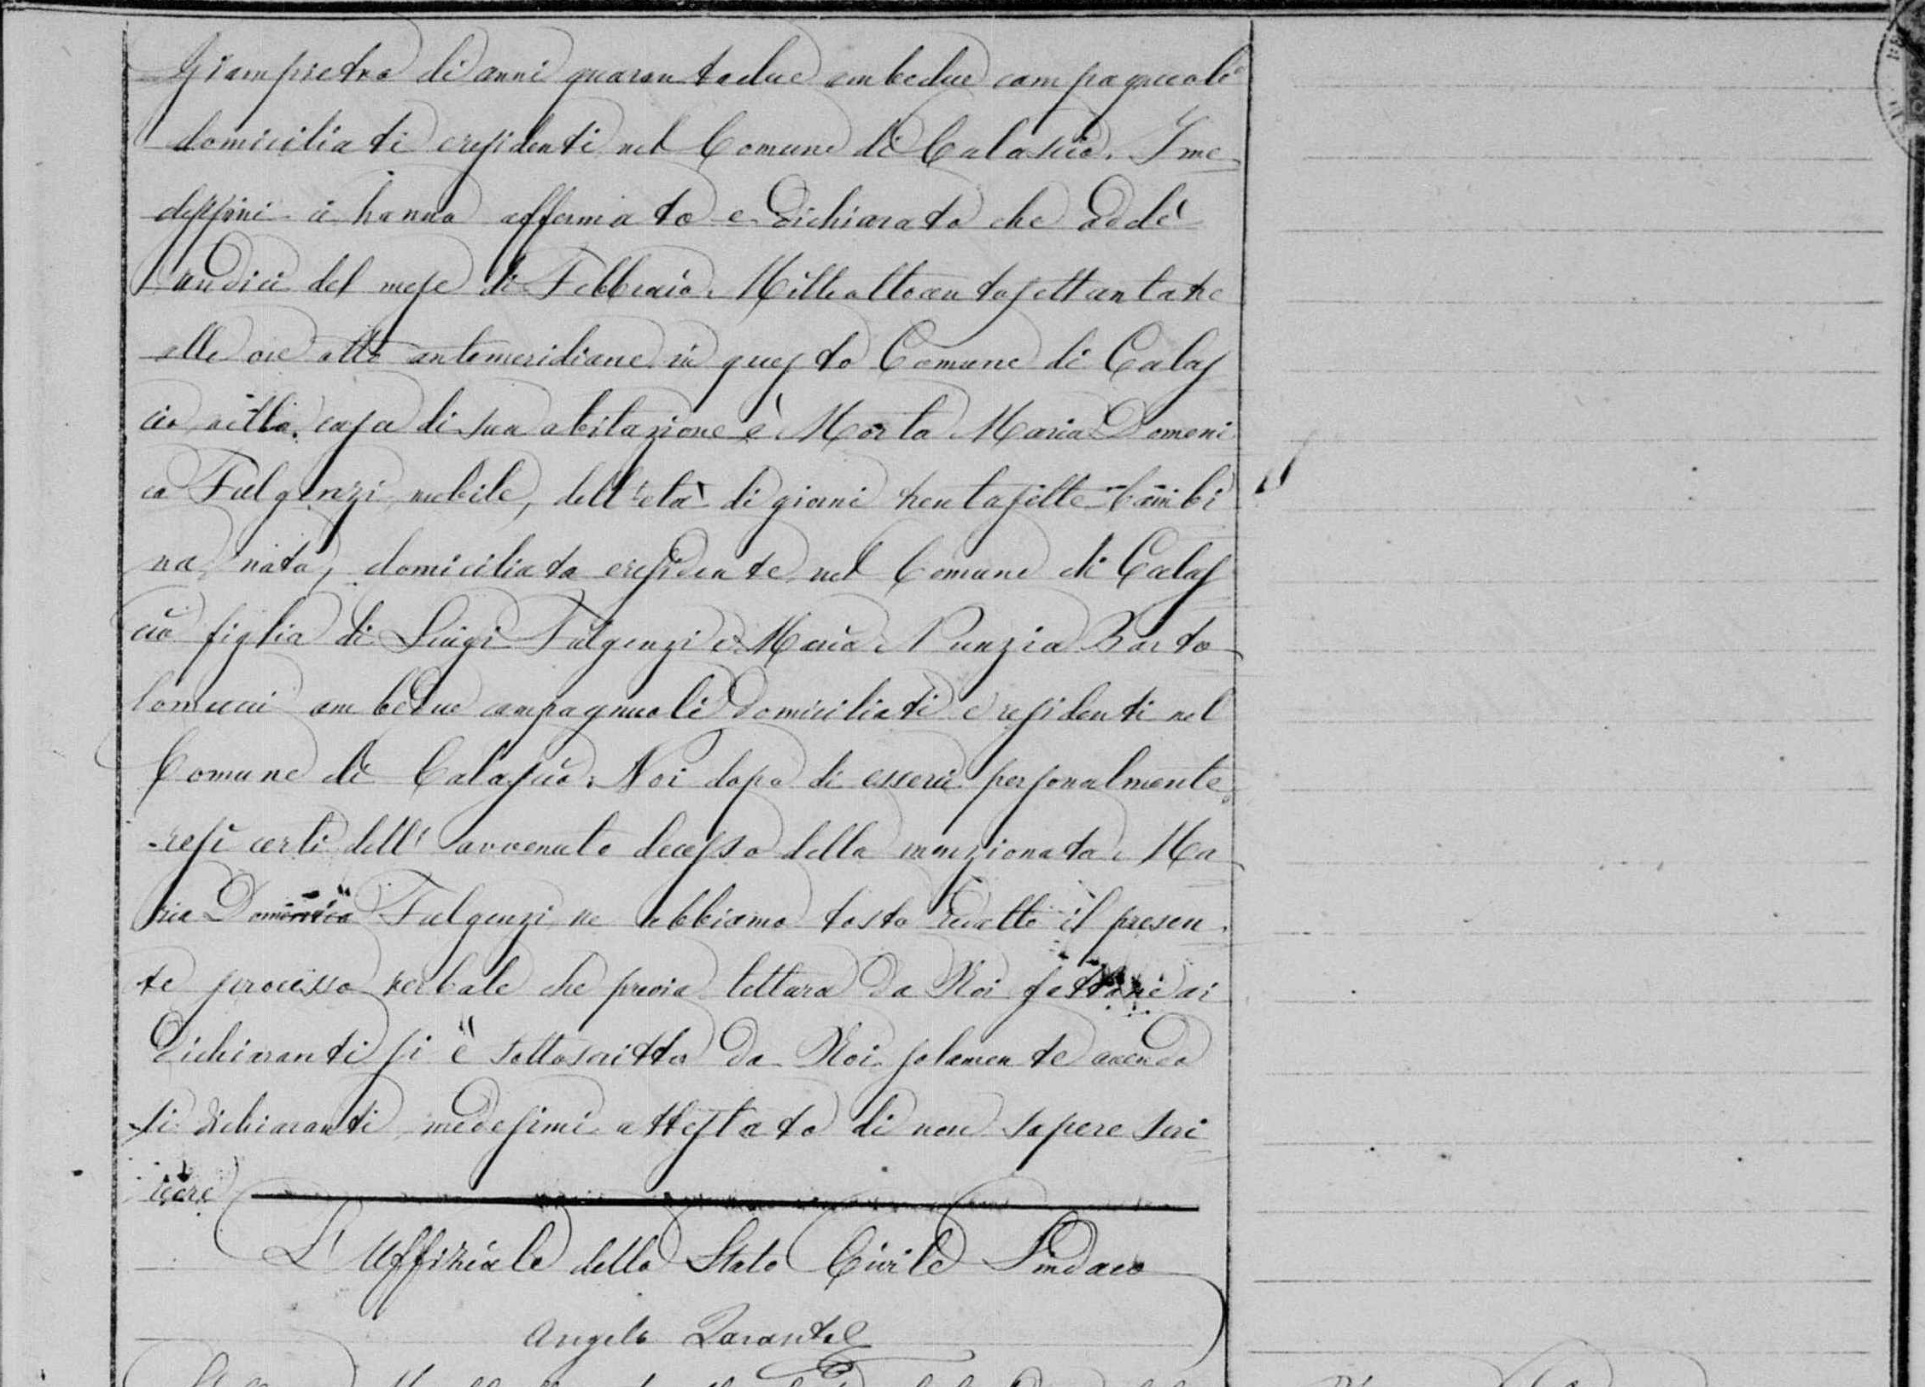 Giampietro di anni quarantadue ambedue campagnuoli
domiciliati e residenti nel Comune di Calascio. I me-
desimi ci hanno affermato e dichiarato che addì
undici del mese di Febbraio Milleottocentosettantatre
alle ore otto antemeridiane in questo Comune di Calas
cio, nella casa di sua abitazione è Morta Maria Domeni
ca Fulgenzi nubile, dell'età di giorni trentasette bambi
na, nata, domiciliata e residente nel Comune di Calas
cio figlia di Luigi Fulgenzi e Maria Nunzia Barto-
lomucci ambedue campagnuoli domiciliati e residenti nel
Comune di Calascio. Noi dopo di esserci personalmente
resi certi dell'avvenuto decesso della menzionata Ma
ria Domenica Fulgenzi ne abbiamo tosto redatto il presen
te processo verbale che previa lettura da Noi fattane ai
dichiaranti si è sottoscritto da Noi solamente avendo
li dichiaranti medesimi attestato di non sapere scri
vere
L'Uffiziale dello Stato Civile Sindaco
Angelo